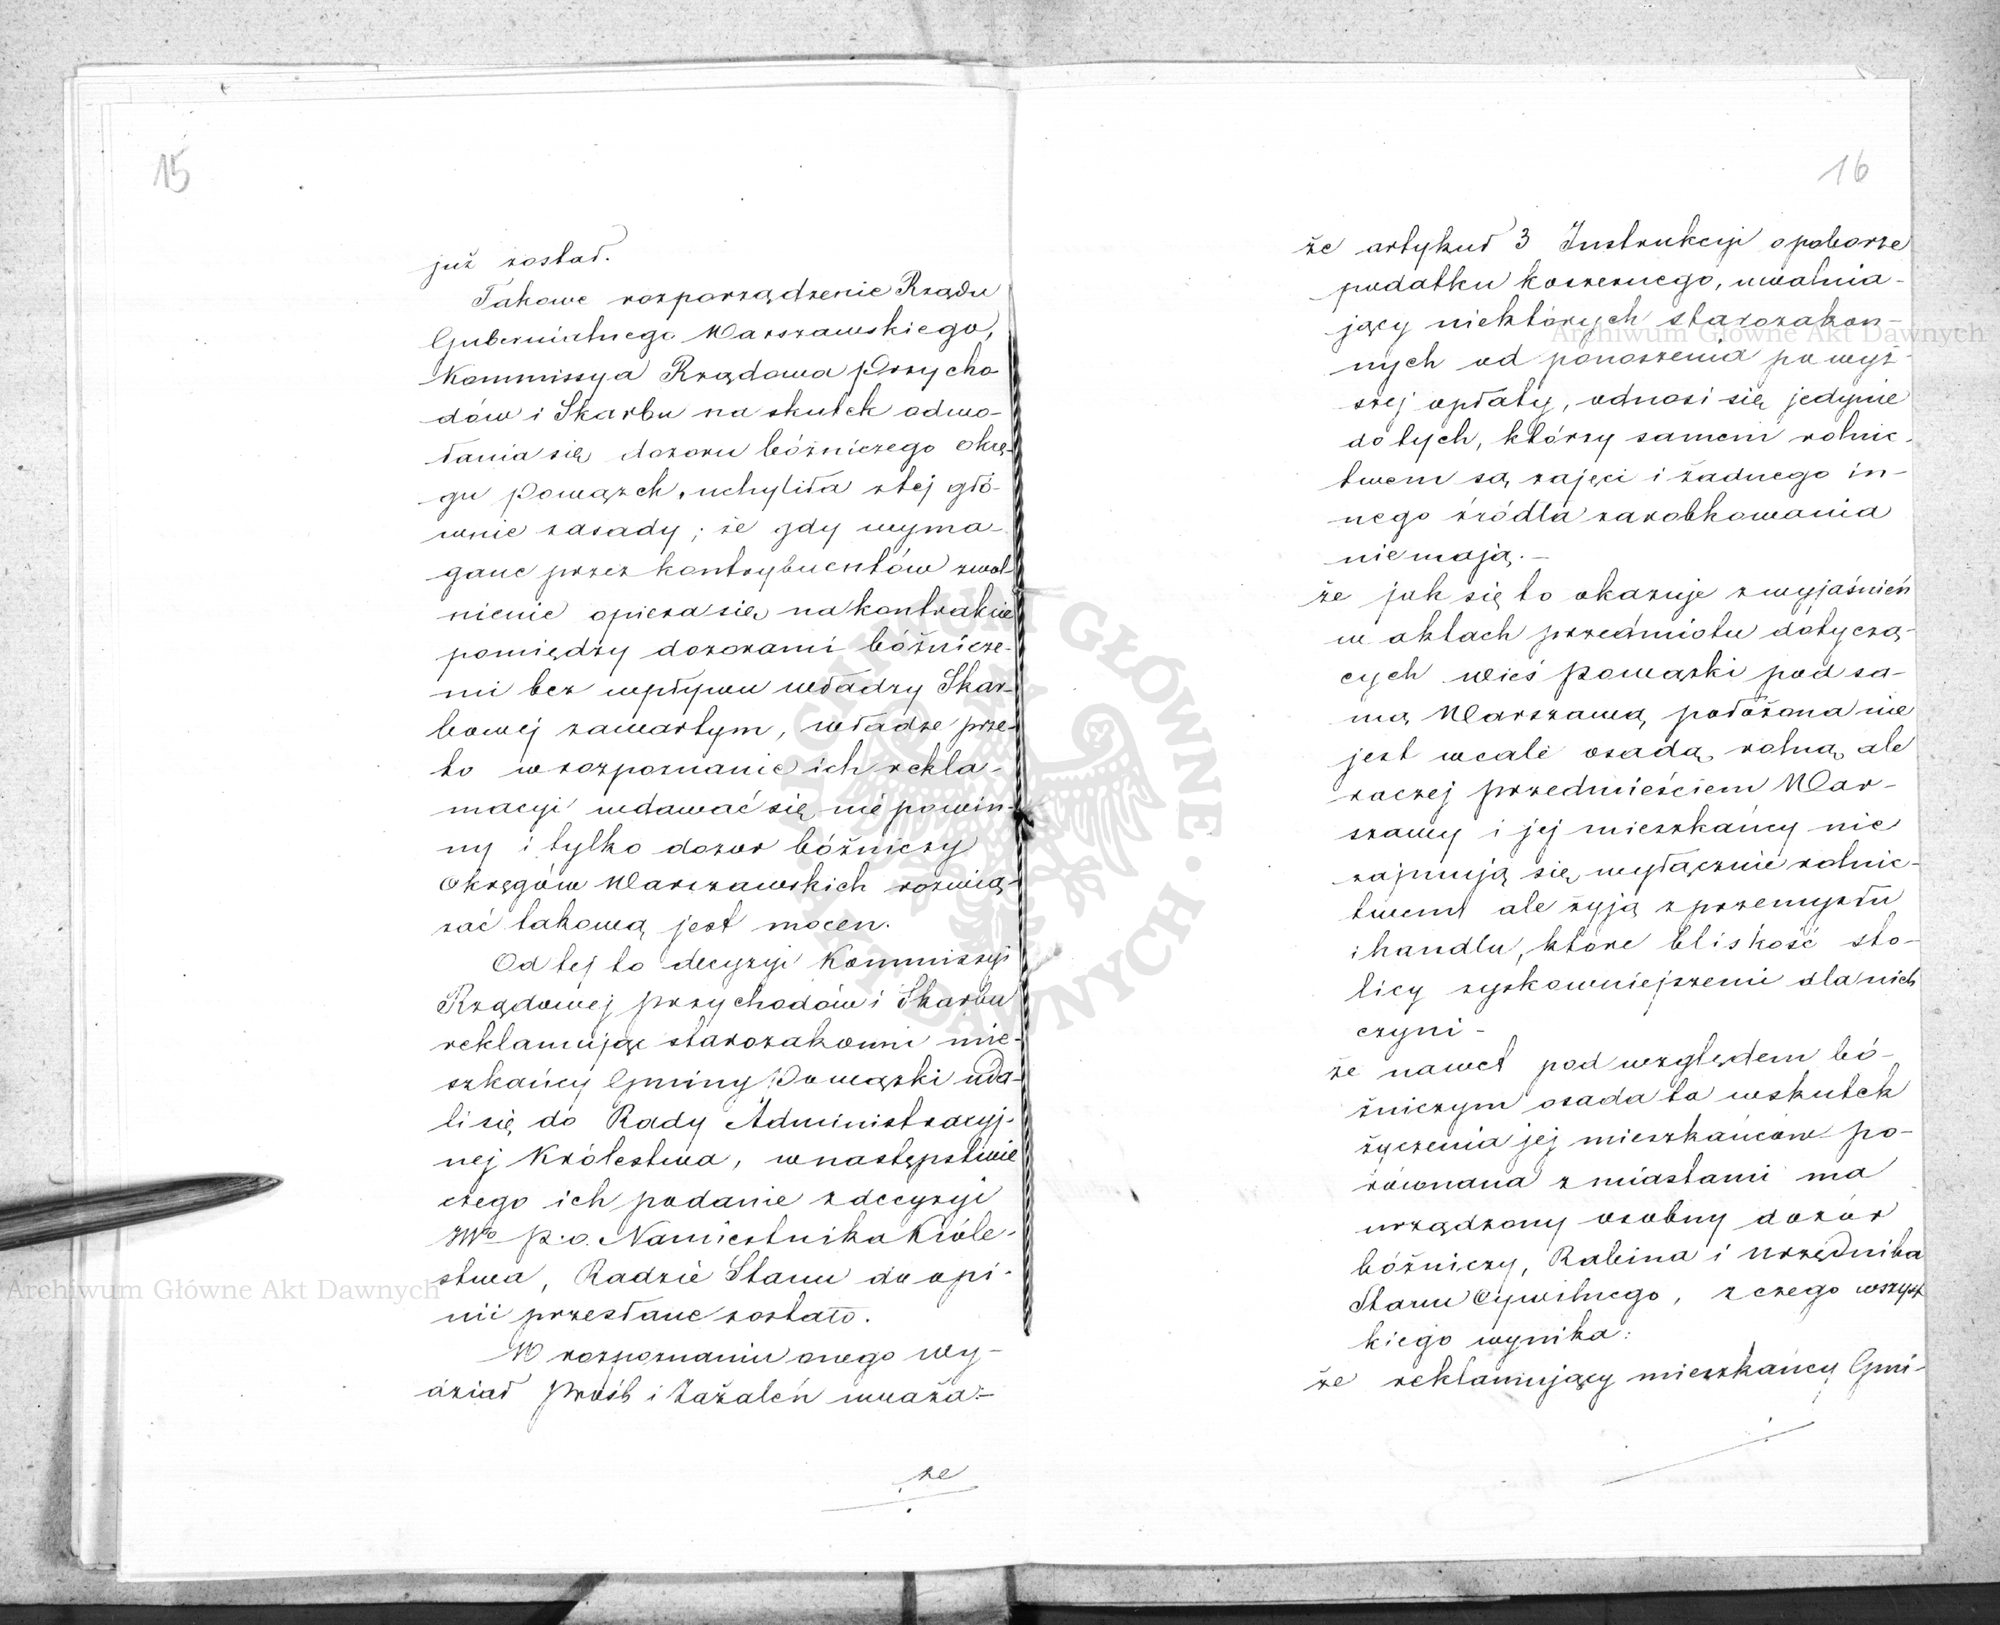 15
już został.
Takowe rozporządzenie Rządu
Gubernialnego Warszawskiego,
Kommissya Rządowa Przycho
dów i Skarbu na skutek odwo-
łania się dozoru bóżniczego Okrę-
gu Powązek, uchyliła z tej głó-
wnie zasady; że gdy wyma-
gane przez kontrybuentów uwol-
nienie opiera się na kontrakcie
pomiędzy dozorami bóżnicze-
mi bez wpływu władzy Skar-
bowej zawartym, władze prze-
to w rozpoznanie ich rekla-
macyi wdawać się nie powin-
ny i tylko dozor bóżniczy
Okręgów Warszawskich rozwią-
zać takową jest mocen.
Od tej to decyzyi Kommissyi
Rządowej Przychodów i Skarbu
reklamując starozakonni mie-
szkańcy Gminy Powązki uda-
li się do Rady Administracyj-
nej Królestwa, w następstwie
czego ich podanie z decyzyi
JWo p.o. Namiestnika Króle-
stwa, Radzie Stanu do opi-
nii przesłane zostało.
W rozpoznaniu onego wy-
dział Próśb i Zażaleń uważa:-
że
16
że artykuł 3 Instrukcyi o poborze
podatku koszernego, uwalnia-
jący niektórych starozakon-
nych od ponoszenia powyż-
szej opłaty, odnosi się jedynie
do tych, którzy samem rolnic-
twem są zajęci i żadnego in-
nego źródła zarobkowania
nie mają.-
że jak się to okazuje z wyjaśnień
w aktach przedmiotu dotyczą-
cych wieś Powązki pod sa-
mą Warszawą położona nie
jest wcale osadą rolną ale
raczej przedmieściem War-
szawy i jej mieszkańcy nie
zajmują się wyłącznie rolnic-
twem ale żyją z przemysłu
i handlu, które bliskość sto-
licy zyskowniejszemi dla nich
czyni -
że nawet pod względem bó-
żniczym osada ta wskutek
życzenia jej mieszkańców po-
równana z miastami ma
urządzony osobny dozór
bóżniczy, Rabina i urzędnika
Stanu Cywilnego, z czego wszyst
kiego wynika:
że reklamujący mieszkańcy Gmi-
Archiwum Główne Akt Dawnych
Archiwum Główne Akt Dawnych
ARCHIWUM GŁÓWNE AKT DAWNYCH